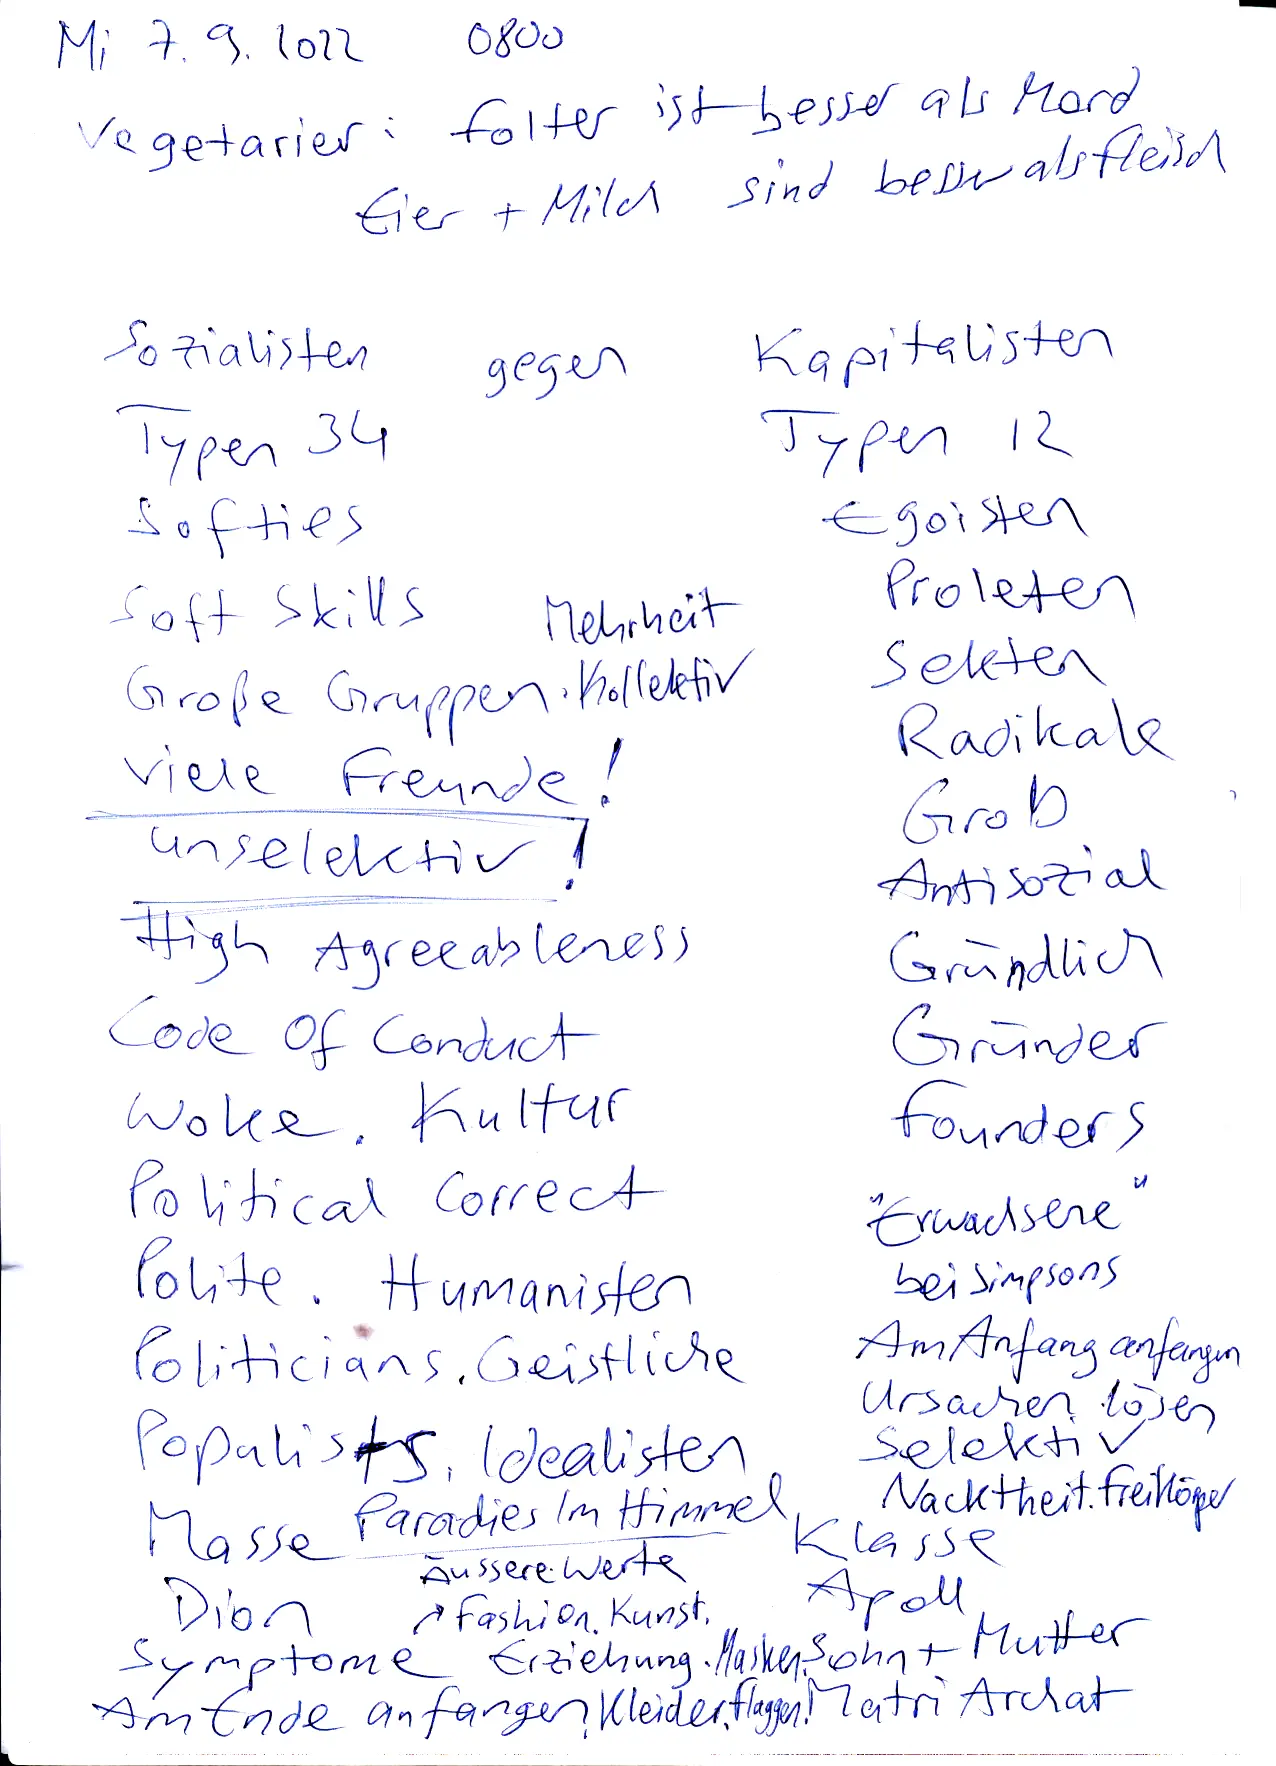 Mi 7.9.2022 0800
Vegetarier: Folter ist besser als Mord
Eier + Milch sind besser als Fleisch
Sozialisten gegen Kapitalisten
Typen 34 Typen 12
Softies Egoisten
Soft Skills Mehrheit Proleten
Große Gruppen. Kollektiv Sekten
Viele Freunde! Radikale
unselektiv! Grob
Antisozial
High Agreeableness Gründlich
Code Of Conduct Gründer
Woke. Kultur Founders
Political Correct "Erwachsene"
Polite. Humanisten bei Simpsons
Politicians. Geistliche Am Anfang anfangen
Ursachen lösen
Populists. Idealisten Selektiv
Nacktheit. Freikörper
Masse Paradies Im Himmel Klasse
Äussere Werte
Dion Fashion. Kunst. Apoll
Symptome Erziehung. Masken. Sohn + Mutter
Am Ende anfangen. Kleider. Flaggen! MatriArchat